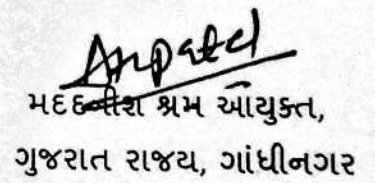 Anpatel
મદદનીશ શ્રમ આયુક્ત,
ગુજરાત રાજ્ય, ગાંધીનગર